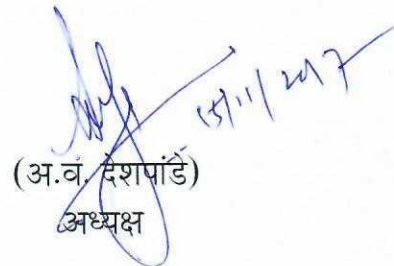 15/11/2017
(अ.वं. देशपांडे)
अध्यक्ष